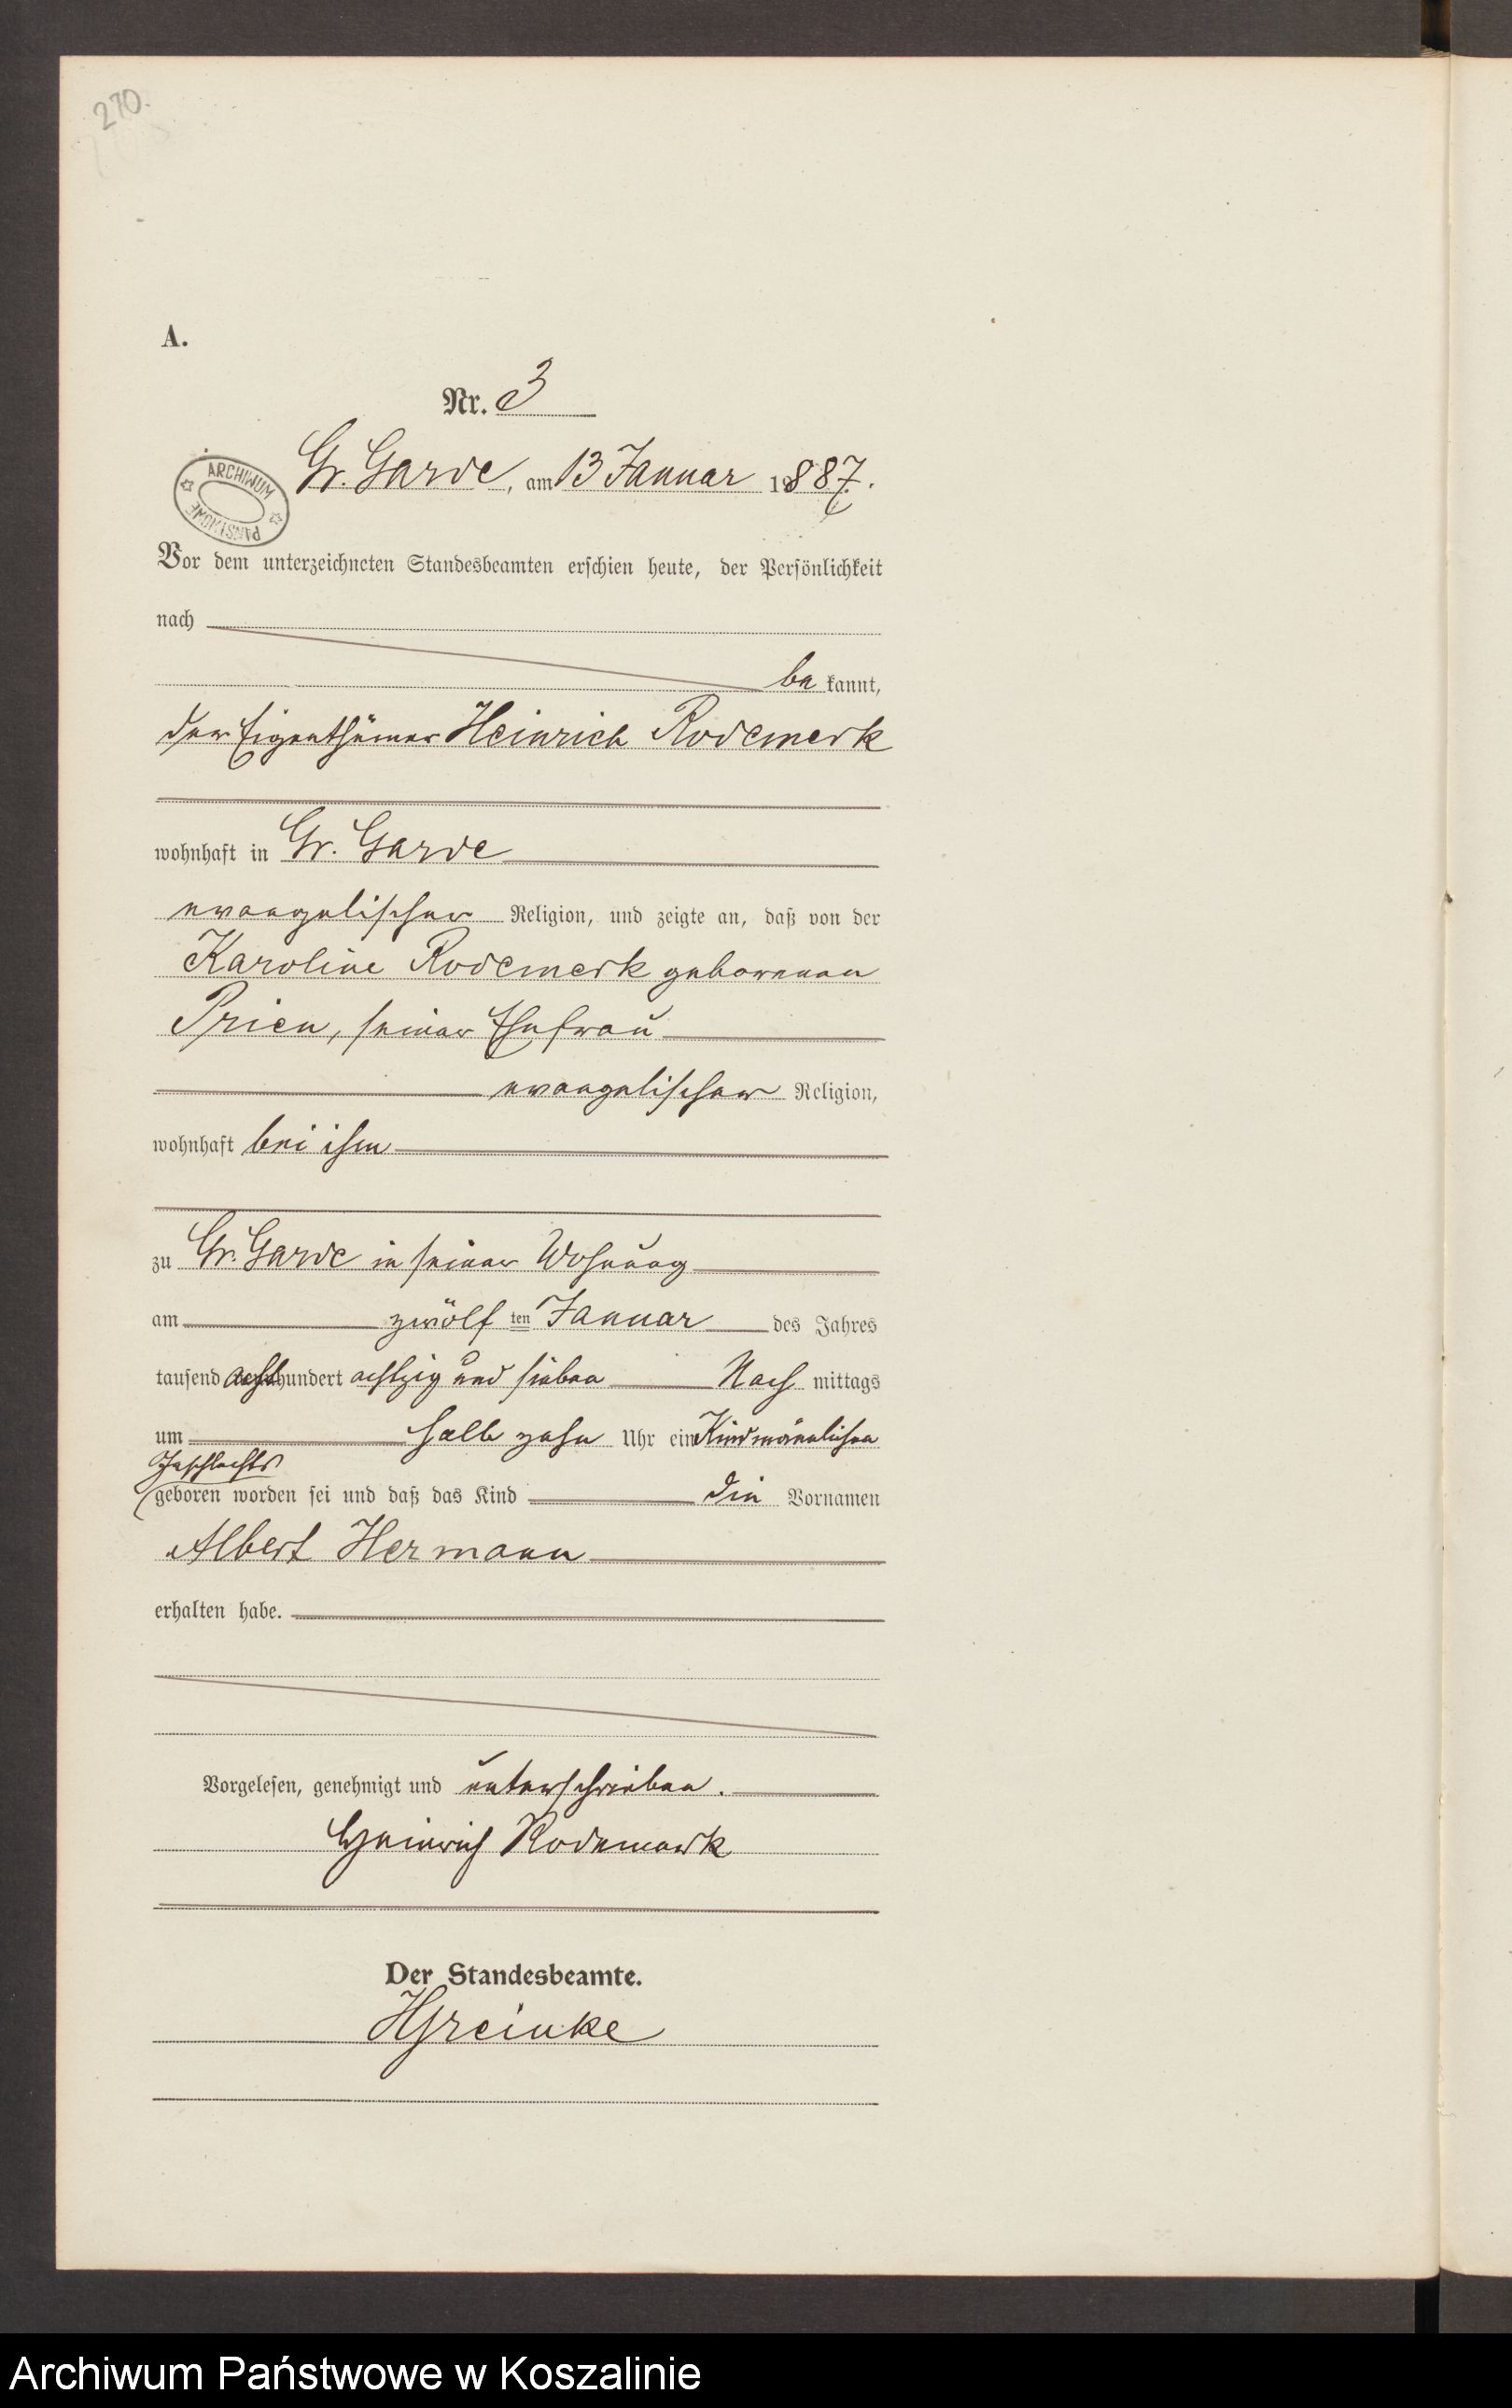 270.
A.
Nr. 3
ARCHIWUM PAŃSTWOWE
Gr. Garde, am 13 Januar 1887.
Vor dem unterzeichneten Standesbeamten erschien heute, der Persönlichkeit
nach
be kannt,
der Eigenthümer Heinrich Rodemerk
wohnhaft in Gr. Garde
evangelischer Religion, und zeigte an, daß von der
Karoline Rodemerk geborenen
Prien, seiner Ehefrau
evangelischer Religion,
wohnhaft bei ihm
zu Gr. Garde in seiner Wohnung
am zwölf ten Januar des Jahres
tausend achthundert achtzig und sieben Nach mittags
um halb zehn Uhr ein Kind männlichen
Geschlechts
geboren worden sei und daß das Kind die Vornamen
Albert Hermann
erhalten habe.
Vorgelesen, genehmigt und unterschrieben.
Heinrich Rodemerk
Der Standesbeamte.
HGreinke
Archiwum Państwowe w Koszalinie